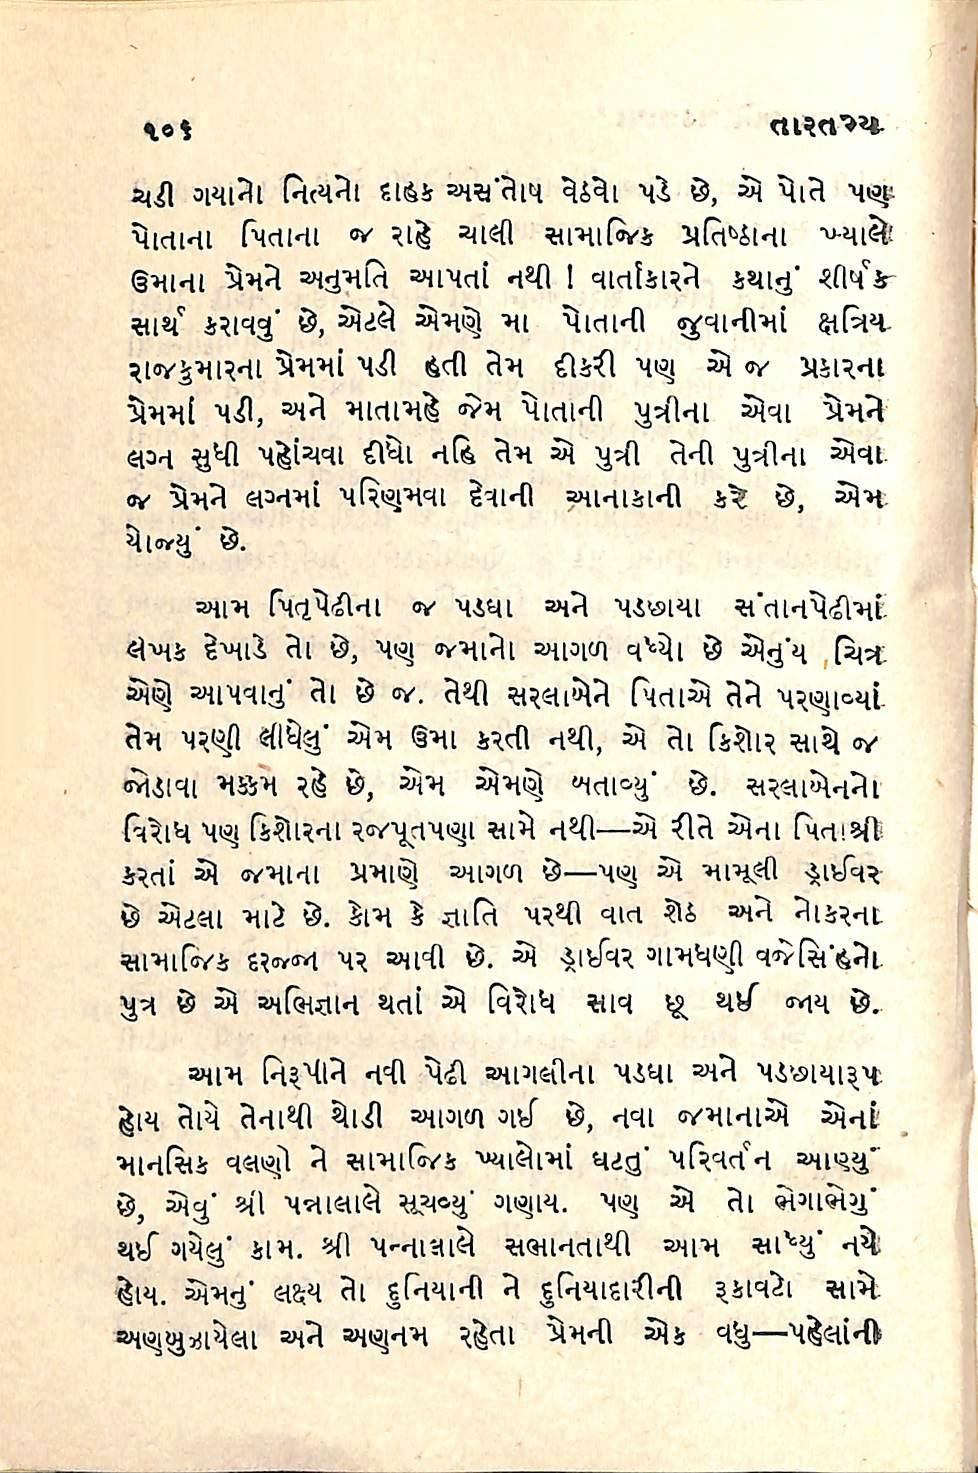 ૧૦૬ તારતમ્ય
ચડી ગયાનો નિત્યનો દાહક અસંતોષ વેઠવો પડે છે, એ પોતે પણ
પોતાના પિતાના જ રાહે ચાલી સામાજિક પ્રતિષ્ઠાના ખ્યાલે
ઉમાના પ્રેમને અનુમતિ આપતાં નથી ! વાર્તાકારને કથાનું શીર્ષક
સાર્થ કરાવવું છે, એટલે એમણે મા પોતાની જુવાનીમાં ક્ષત્રિય
રાજકુમારના પ્રેમમાં પડી હતી તેમ દીકરી પણ એ જ પ્રકારના
પ્રેમમાં પડી, અને માતામહે જેમ પોતાની પુત્રીના એવા પ્રેમને
લગ્ન સુધી પહોંચવા દીધો નહિ તેમ એ પુત્રી તેની પુત્રીના એવા
જ પ્રેમને લગ્નમાં પરિણમવા દેવાની આનાકાની કરે છે, એમ
યોજ્યું છે.
આમ પિતૃપેઢીના જ પડઘા અને પડછાયા સંતાનપેઢીમાં
લેખક દેખાડે તો છે, પણ જમાનો આગળ વધ્યો છે એનુંય ચિત્ર
એણે આપવાનું તો છે જ. તેથી સરલાબેને પિતાએ તેને પરણાવ્યાં
તેમ પરણી લીધેલું એમ ઉમા કરતી નથી, એ તો કિશોર સાથે જ
જોડાવા મક્કમ રહે છે, એમ એમણે બતાવ્યું છે. સરલાબેનનો
વિરોધ પણ કિશોરના રજપૂતપણા સામે નથી—એ રીતે એના પિતાશ્રી
કરતાં એ જમાના પ્રમાણે આગળ છે—પણ એ મામૂલી ડ્રાઈવર
છે એટલા માટે છે. કોમ કે જ્ઞાતિ પરથી વાત શેઠ અને નોકરના
સામાજિક દરજ્જા પર આવી છે. એ ડ્રાઈવર ગામધણી વજેસિંહનો
પુત્ર છે એ અભિજ્ઞાન થતાં એ વિરોધ સાવ છૂ થઈ જાય છે.
આમ નિરૂપીને નવી પેઢી આગલીના પડઘા અને પડછાયારૂપ
હોય તોયે તેનાથી થોડી આગળ ગઈ છે, નવા જમાનાએ એનાં
માનસિક વલણો ને સામાજિક ખ્યાલોમાં ઘટતું પરિવર્તન આણ્યું
છે, એવું શ્રી પન્નાલાલે સૂચવ્યું ગણાય. પણ એ તો ભેગાભેગું
થઈ ગયેલું કામ. શ્રી પન્નાલાલે સભાનતાથી આમ સાધ્યું નયે
હોય. એમનું લક્ષ્ય તો દુનિયાની ને દુનિયાદારીની રૂકાવટો સામે
અણબુઝાયેલા અને અણનમ રહેતા પ્રેમની એક વધુ—પહેલાંની